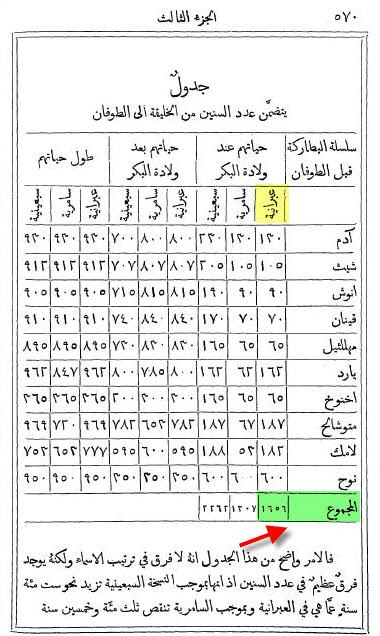 ٥٧٠ الجزء الثالث
جدولٌ
يتضمَّن عدد السنين من الخليقة الى الطوفان
سلسلة البطاركة قبل الطوفان حياتهم عند ولادة البكر حياتهم بعد ولادة البكر طول حياتهم
عبرانية سامرية سبعينية عبرانية سامرية سبعينية عبرانية سامرية سبعينية
آدم ١٣٠ ١٣٠ ٢٣٠ ٨٠٠ ٨٠٠ ٧٠٠ ٩٣٠ ٩٣٠ ٩٣٠
شيث ١٠٥ ١٠٥ ٢٠٥ ٨٠٧ ٨٠٧ ٧٠٧ ٩١٢ ٩١٢ ٩١٢
انوش ٩٠ ٩٠ ١٩٠ ٨١٥ ٨١٥ ٧١٥ ٩٠٥ ٩٠٥ ٩٠٥
قينان ٧٠ ٧٠ ١٧٠ ٨٤٠ ٨٤٠ ٧٤٠ ٩١٠ ٩١٠ ٩١٠
مهللئيل ٦٥ ٦٥ ١٦٥ ٨٣٠ ٨٣٠ ٧٣٠ ٨٩٥ ٨٩٥ ٨٩٥
يارد ١٦٢ ٦٢ ١٦٢ ٨٠٠ ٧٨٥ ٨٠٠ ٩٦٢ ٨٤٧ ٩٦٢
اخنوخ ٦٥ ٦٥ ١٦٥ ٣٠٠ ٣٠٠ ٢٠٠ ٣٦٥ ٣٦٥ ٣٦٥
متوشالح ١٨٧ ٦٧ ١٨٧ ٧٨٢ ٦٥٣ ٧٨٢ ٩٦٩ ٧٢٠ ٩٦٩
لامك ١٨٢ ٥٣ ١٨٨ ٥٩٥ ٦٠٠ ٥٩٥ ٧٧٧ ٦٥٣ ٧٥٣
نوح ٦٠٠ ٦٠٠ ٦٠٠ ٣٥٠ ٣٥٠ ٣٥٠ ٩٥٠ ٩٥٠ ٩٥٠
المجموع ١٦٥٦ ١٣٠٧ ٢٢٦٢
فالامر واضح من هذا الجدول انه لا فرق في ترتيب الاسماء ولكنهُ يوجد
فرقٌ عظيمٌ في عدد السنين اذ انها بموجب النسخة السبعينية تزيد نحو ست مئة
سنةٍ عمَّا هي في العبرانية وبموجب السامرية تنقص ثلث مئة وخمسين سنة